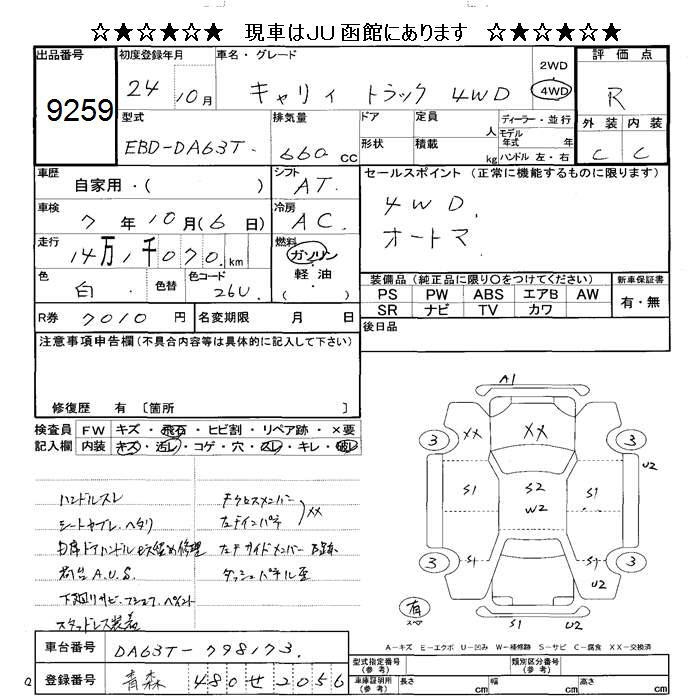 ☆★☆★☆★☆ 現車はJU函館にあります ☆★☆★☆★☆
出品番号
9259
初度登録年月
24 10月
車名・グレード
キャリィ トラック 4WD
2WD
4WD
評価点
R
外装 内装
C C
型式
EBD-DA63T
排気量
660 cc
ドア
形状
定員
人
積載
kg
ディーラー・並行
モデル
年式 年
ハンドル 左・右
車歴
自家用・( )
シフト
AT
セールスポイント(正常に機能するものに限ります)
4WD
オートマ
車検
7年10月(6日)
冷房
AC
走行
14万1千070km
燃料
ガソリン
軽油・
( )
色
白
色替
色コード
26U
装備品(純正品に限り○をつけてください)
PS PW ABS エアB AW
SR ナビ TV カワ
新車保証書
有・無
R券 7010円
名変期限 月 日
後日品
注意事項申告欄(不具合内容等は具体的に記入して下さい)
修復歴 有 〔箇所 〕
検査員
記入欄
FW キズ・飛石・ヒビ割・リペア跡・×要
内装 キズ・汚レ・コゲ・穴・スレ・キレ・破レ
ハンドルスレ
シートヤブレ、ヘタリ
荷台A.U.S.
下回リサビ、
スタッドレス装着
XX
A1
XX XX
3 3
S1 S2 S1
W2
U2
3 3
S1 S1
U2
有
スペア
S1 U2
A-キズ E-エクボ U-凹み W-補修跡 S-サビ C-腐食 XX-交換済
車台番号
DA63T-798173
登録番号
青森 480せ2056
型式指定番号
(参考)
類別区分番号
(参考)
車庫証明所
(参考)
長さ cm
幅 cm
高さ cm